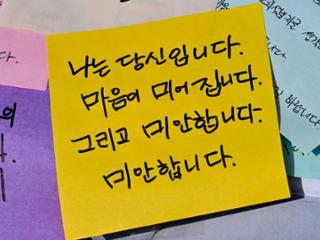 나는 당신입니다.
마음이 미어집니다.
그리고 미안합니다.
미안합니다.